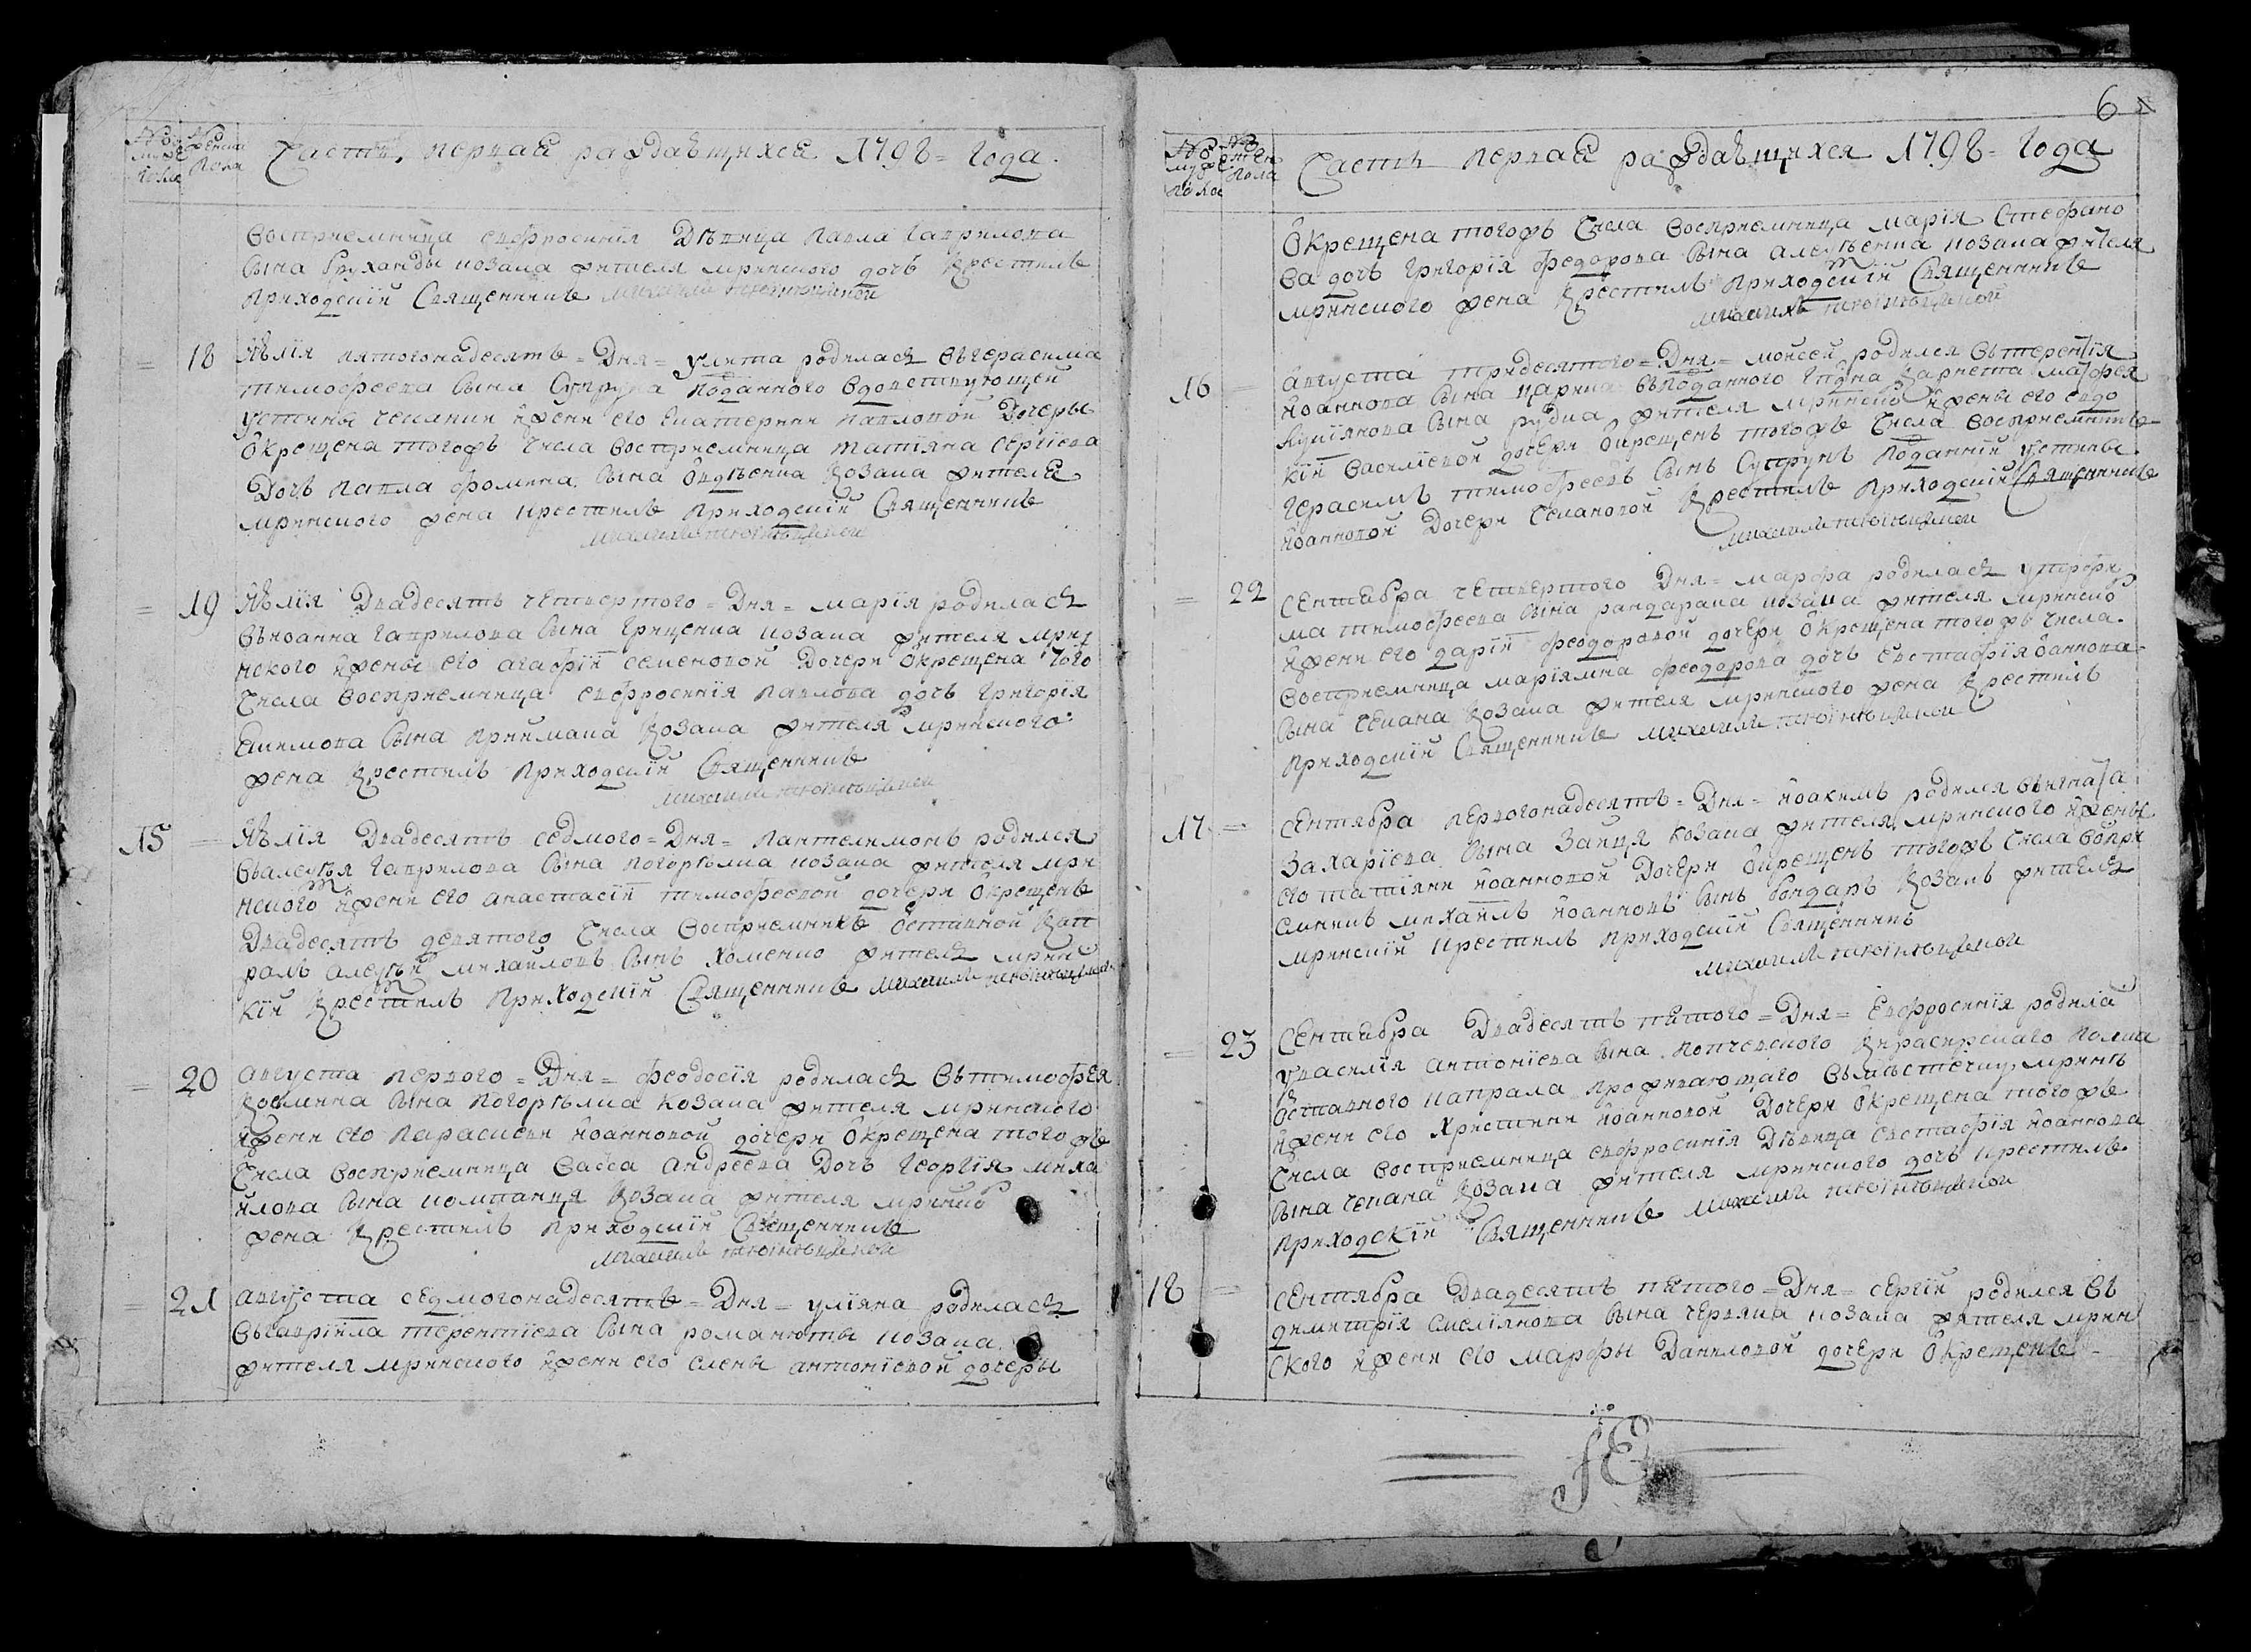 № мужеска пола
№ женска пола
Часть первая раждающихся 1798 = Года.
Восприемница евфросинія Дѣвица павла гаврилова
сына козака жителя мринского дочь Крестилъ
приходскій Священникъ михаилъ
= 18 Іюлія пятогонадесять = Дня = улита родилась въ герасима
тимофеева сына Супруна поданного вдовствующей
устины чепания ижени его Екатерини павловой Дочеры
Окрещена тогожъ числа восприемница татіяна Сергіева
Дочь павла фомина сына Козака жителя
мринского жена крестилъ приходскій Священникъ
михаилъ
= 19 Іюлія Двадесять четвертого = Дня = марія родилась
въ иоанна гаврилова сына Гриценка козака жителя мри
нского ижены его агафіи семеновой Дочери Окрещена того
числа восприемница евфросинія павлова дочь григорія
Екимова сына приймака козака жителя мринского
жена Крестилъ приходскій Священникъ
михаилъ
15 = Іюлія Двадесять седмого = Дня = пантелимонъ родился
въ алеѯѣя гаврилова сына погорѣлка козака жителя мри
нского ижени его анастасіи тимофеевой дочери Окрещенъ
Двадесять девятого числа восприемникъ Отставной Кап
ралъ алеѯѣй михайловъ сынъ хоменко житель мринс
кій Крестилъ приходскій Священникъ михаилъ
= 20 августа первого = Дня = феодосія родилась въ тимофея
Космина сына погорѣлка козака жителя мринского
ижени его параскеви иоанновой дочери Окрещена того же
числа восприемница васса андреева Дочь георгія миха
йлова сына компанця Козака жителя мринско
жена Крестилъ приходскій Священникъ
михаилъ
= 21 августа седмогонадесять = Дня = уліяна родилась
въ гавріила терентіева сына романюты козака
жителя мринского ижени его елены антоніевой дочеры
6
№ мужеска пола
№ женска пола
Часть первая раждающихся 1798 = Года
Окрещена тогожъ числа восприемница марія Стефано
ва дочь григорія федорова сына алеѯѣенка козака жителя
мринского жена Крестилъ приходскій Священникъ
михаилъ
16 = августа тридесятого = Дня = моисей родился въ терентія
иоаннова сына царика въ поданного матфея
лукіянова сына рудка жителя мринско ижены его евдо
кіи василіевой дочери Окрещенъ тогожъ числа восприемникъ
герасимъ тимофеевъ сынъ Супрунъ поданній устины
иоанновой Дочери чепановой Крестилъ приходскій Священникъ
михаилъ
= 22 Сентября четвертого Дня = марфа родилась у трофи
ма тимофеева сына козака жителя мринско
ижени его даріи феодоровой дочери Окрещена тогожъ числа
восприемница маріямна феодорова дочь евстафія иоаннова
сына чепака Козака жителя мринского жена Крестилъ
приходскій Священникъ михаилъ
17 = Сентября первогонадесять = Дня = иоакимъ родился въ игната
Захаріева сына Зайця козака жителя мринского ижены
его татіяни иоанновой Дочери Окрещенъ тогожъ числа воспри
емникъ михаилъ иоанновъ сынъ бондаръ Козакъ житель
мринскій крестилъ приходскій Священникъ
михаилъ
= 23 Сентября Двадесять пятого = Дня = Евфросинія родилась
у василія антоніева сына Кирасирскаго полка
отставного капрала проживающаго въ мѣстечку мринѣ
ижени его христини иоанновой Дочери Окрещена тогожъ
числа восприемница евфросинія Дѣвица евстафія иоаннова
сына чепака Козака жителя мринского дочь крестилъ
приходскій Священникъ михаилъ
18 = Сентября Двадесять пятого = Дня = сергій родился въ
димитрія емеліянова сына червяка козака жителя мрин
ского ижени его марфы Даниловой дочери Окрещенъ